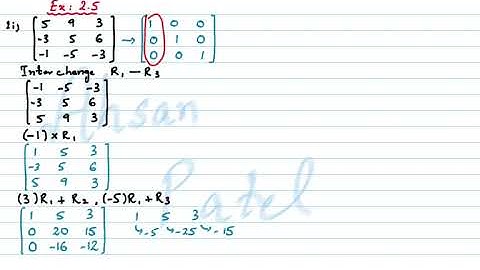 Ex: 2.5
1i) [5 9 3; -3 5 6; -1 -5 -3] → [1 0 0; 0 1 0; 0 0 1]
Interchange R₁ — R₃
[-1 -5 -3; -3 5 6; 5 9 3]
(-1) × R₁
[1 5 3; -3 5 6; 5 9 3]
(3)R₁ + R₂, (-5)R₁ + R₃
[1 5 3; 0 20 15; 0 -16 -12] 1 5 3
↳-5 ↳-25 ↳-15
Ahsan
Patel